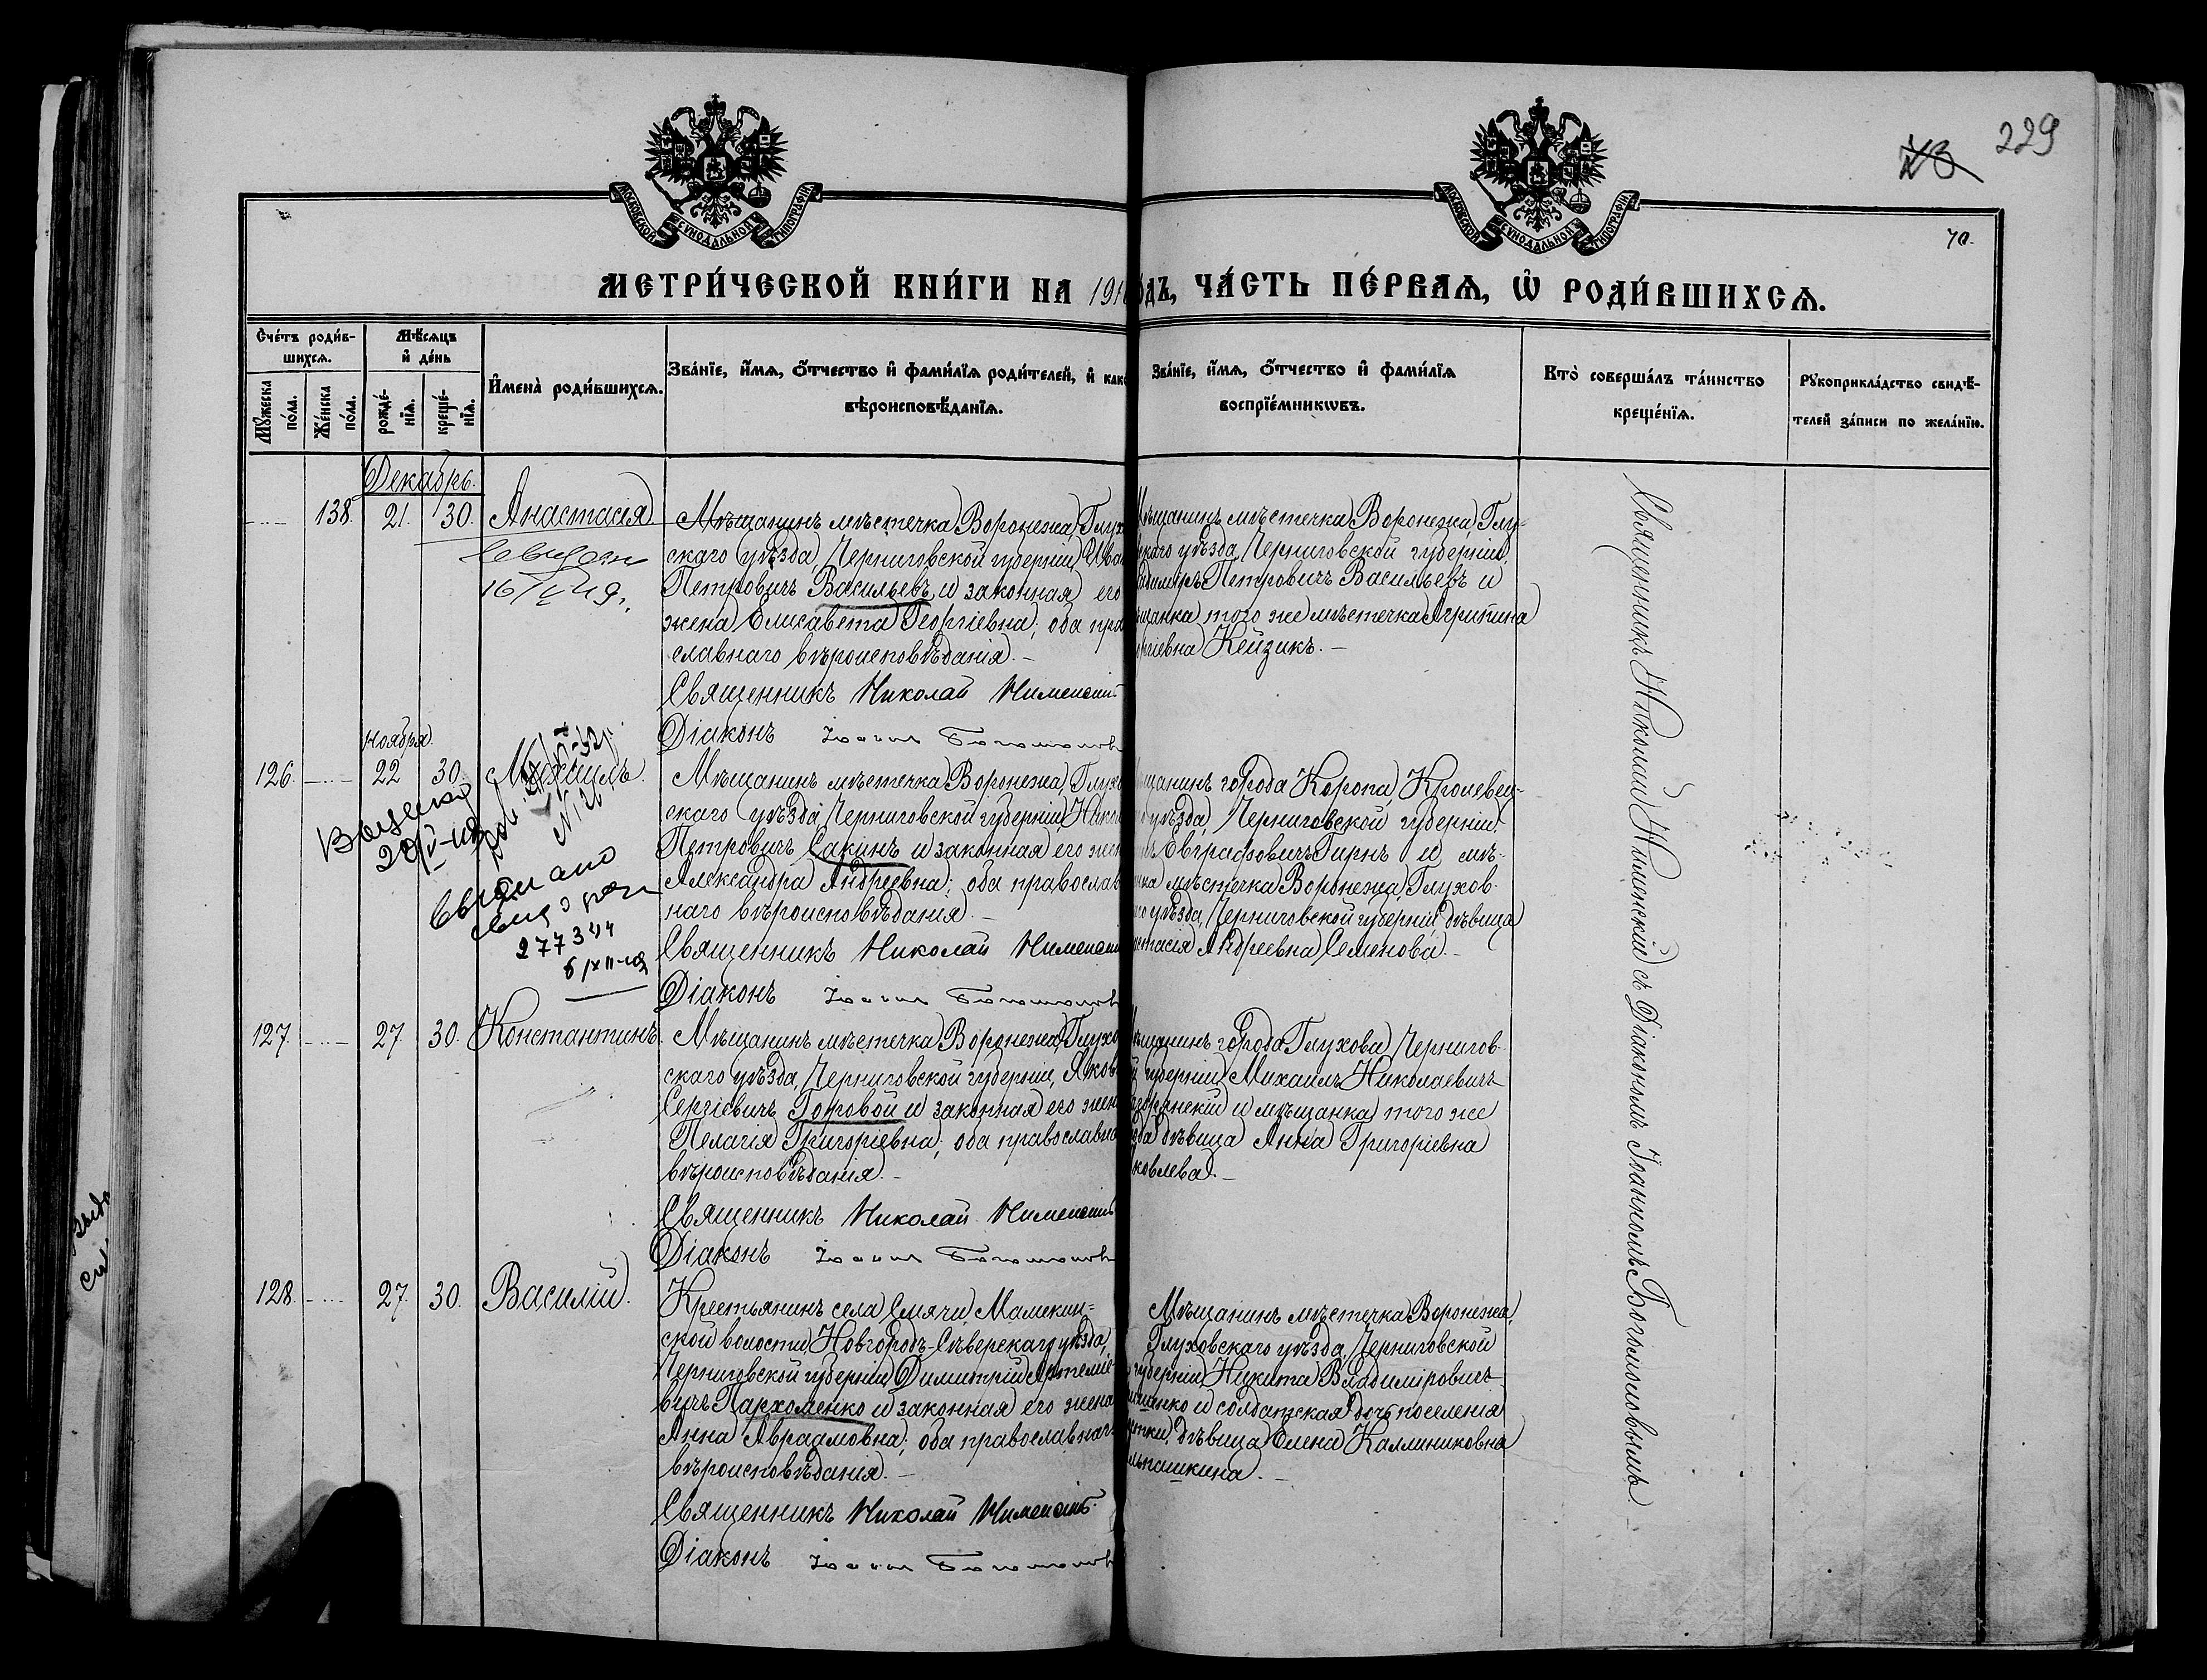 229
70.
МОСКОВСКОЙ СУНОДАЛЬНОЙ ТИПОГРАФІИ
МОСКОВСКОЙ СУНОДАЛЬНОЙ ТИПОГРАФІИ
МЕТРИ́ЧЕСКОЙ КНИ́ГИ НА 191
ОДЪ, ЧА́СТЬ ПЕ́РВАѦ, Ѡ РОДИ́ВШИХСѦ.
Сче́тъ роди́в-
шихсѧ.
Мꙋжеска по́ла.
Же́нска по́ла.
Мѣ́сѧцъ
и҆ де́нь
рожде́-
нїѧ.
креще́-
нїѧ.
И҆мена̀ роди́вшихсѧ.
Зва́нїе, и҆́мѧ, ѻ҆́тчество и҆ фами́лїѧ роди́телей, и҆ како
вѣроисповѣ́данїѧ.
Зва́нїе, и҆́мѧ, ѻ҆́тчество и҆ фами́лїѧ
воспрїе́мникѡвъ.
Кто̀ соверша́лъ та́инство
креще́нїѧ.
Рꙋкоприкла́дство свидѣ́-
телей за́писи по жела́нїю.
Декабрь.
138. 21. 30. Анастасія
16/
Мѣщанинъ мѣстечка Воронежа, Глухо
скаго уѣзда, Черниговской губерніи, Ива
Петровичъ Васильевъ и законная его
жена Елисавета Георгіевна; оба пра
славнаго вѣроисповѣданія. –
Священникъ Николай Нименскій
Діаконъ Іоаннъ Богомоловъ
щанинъ мѣстечка Воронежа, Глу-
скаго уѣзда, Черниговской губерніи,
адиміръ Петровичъ Васильевъ и
щанка того же мѣстечка Агрипина
ргіевна Кейзикъ. –
Ноября.
126. 22 30. Михаилъ.
выдано
277344
Мѣщанинъ мѣстечка Воронежа, Глухо
скаго уѣзда, Черниговской губерніи, Никол
Петровичъ Сакинъ и законная его жен
Александра Андреевна; оба православ
наго вѣроисповѣданія. –
Священникъ Николай Нименскій
Діаконъ Іоаннъ Богомоловъ
щанинъ города Коропа, Кролевец-
уѣзда, Черниговской губерніи,
Евграфовичъ Гирнъ и мѣ-
нка мѣстечка Воронежа, Глухов-
го уѣзда, Черниговской губерніи дѣвица
стасія Андреевна Семенова. –
127. 27. 30. Константинъ.
Мѣщанинъ мѣстечка Воронежа, Глухо
скаго уѣзда, Черниговской губерніи, Яков
Сергіевичъ Горовой и законная его жен
Пелагія Григоріевна; оба православна
вѣроисповѣданія. –
Священникъ Николай Нименскій
Діаконъ Іоаннъ Богомоловъ
щанинъ города Глухова, Чернигов-
й губерніи, Михаилъ Николаевичъ
и мѣщанка того же
ода дѣвица Анна Григоріевна
ковлева. –
128. 27. 30. Василій.
Крестьянинъ села Смячи, Мамекин-
ской волости, Новгородъ-Сѣверскаго уѣзда,
Черниговской губерніи, Димитрій Артеміе-
вичъ Пархоменко и законная его жена
Анна Авраамовна; оба православнаг
вѣроисповѣданія. –
Священникъ Николай Нименскій
Діаконъ Іоаннъ Богомоловъ
Мѣщанинъ мѣстечка Воронежа,
Глуховскаго уѣзда, Черниговской
губерніи, Никита Владиміровичъ
и солдатская дочь поселенія
дѣвица Елена Каллиниковна
пашкина. –
Священникъ Николай Нименскій съ Діакономъ Іоанномъ Богомоловымъ. –